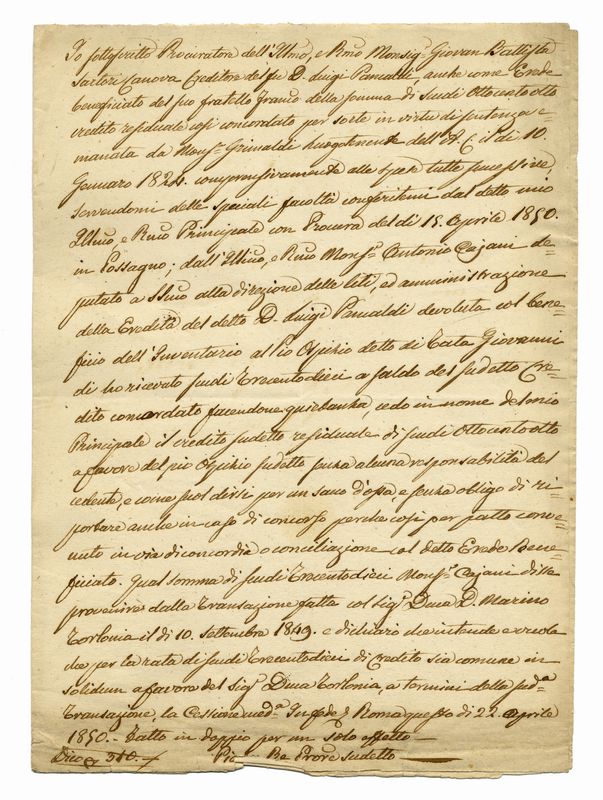 Io sottoscritto Procuratore dell'Illmo, e Rmo Monsigr Giovan Battista
Sartori Canova Creditore del fù D. Luigi Pancaldi, anche come Erede
beneficiato del suo fratello Franco della somma di Scudi Ottocentootto
credito residuale così concordato per sorte in virtù di sentenza e=
manata da Monsr Grimaldi Luogotenente dell'A. C. il dì 10.
Gennaro 1824. comprensivamente alle spese tutte successive,
servendomi delle speciali facoltà conferitemi dal detto mio
Illmo, e Rmo Principale con Procura del dì 15. Aprile 1850.
in Possagno; dall'Illmo, e Rmo Monsr Antonio Cajani de=
putato a SSmo alla direzione delle liti, ed amministrazione
della Eredità del detto D. Luigi Pancaldi devoluta col bene
ficio dell'Inventario al Pio Ospizio detto di Tata Giovanni
di ho ricevuto scudi Trecentodieci a saldo del sudetto Cre=
dito concordato facendone quietanza, cedo in nome del mio
Principale il credito sudetto residuale di scudi Ottocentootto
a favore del pio Ospizio sudetto senza alcuna responsabilità del
cedente, e come suol dirsi per un sacco d'ossa, e senza obligo di ri=
portare anche in caso di concorso perche così per patto conve=
nuto in via di concordia o conciliazione col detto Erede Bene=
ficiato. Qual somma di scudi Trecentodieci Monsr Cajani disse
provenire dalla Transazione fatta col Sigr Duca D. Marino
Torlonia il dì 10. Settembre 1849. e dichiarò che intende e vuole
che per la rata di scudi Trecentodieci di credito sia comune in
solidum a favore del Sigr Duca Torlonia, a termini della suda
Transazione, la Cessione meda In fede Roma questo dì 22. Aprile
1850.- Fatto in doppio per un solo effetto —
Dico 310.- ProVe sudetto —